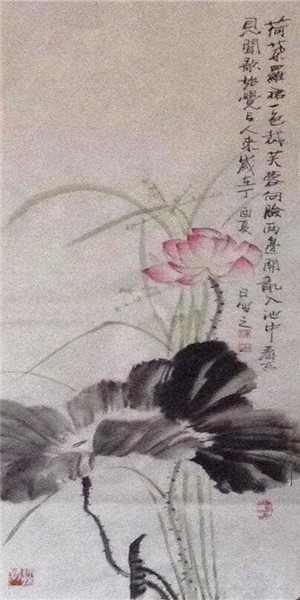 荷葉羅裙一色裁芙蓉向臉两邊開亂入池中看不
見聞歌始覺有人来歲在丁酉夏